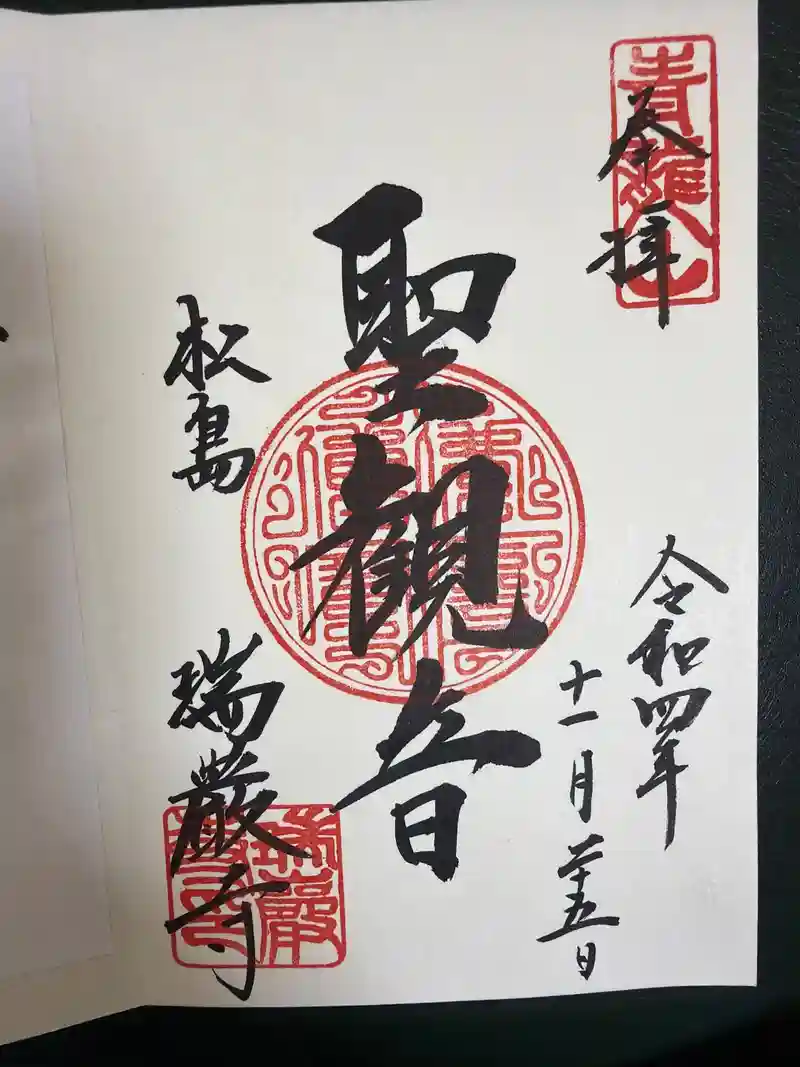 青龍山
奉拝
令和四年
十一月二十五日
聖観音
松島
瑞巌寺